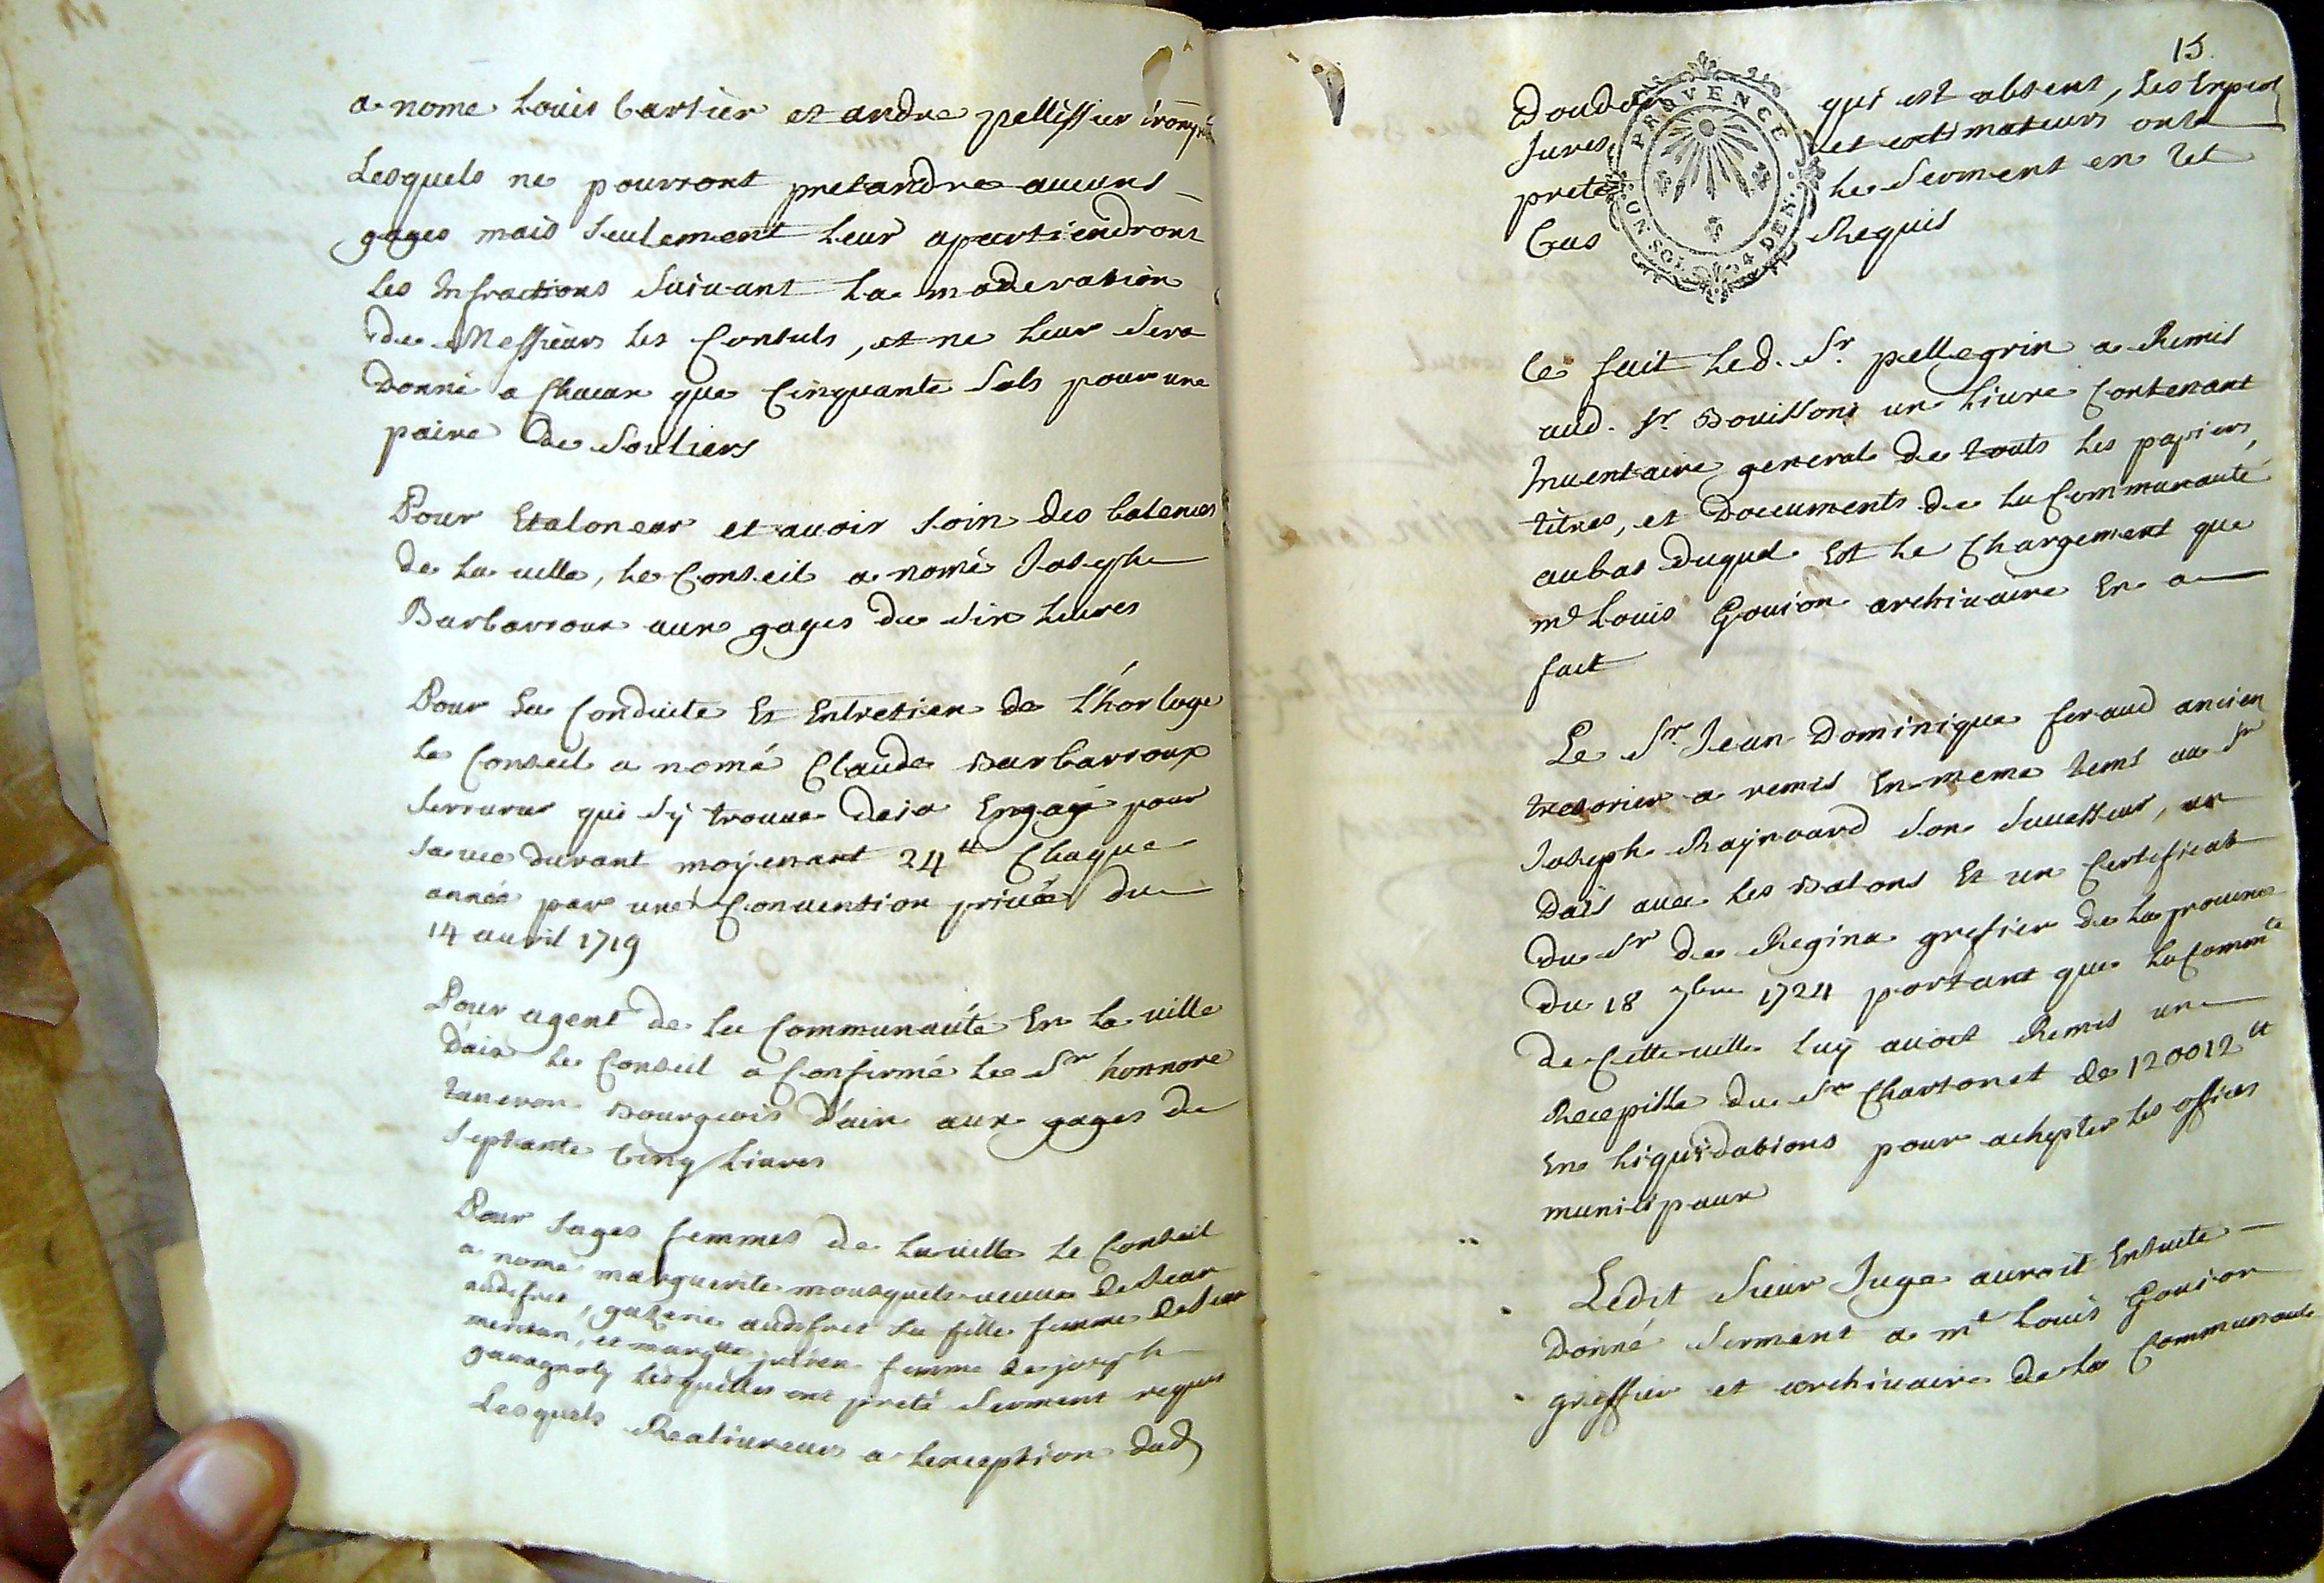 a nomé Louis Cartier et andre pellissier
Lesquels ne pourront pretandre aucuns
gages mais seulement leur apartiendront
les Infractions suivant la moderation
de Messieurs les Consuls, et ne leur sera
donné a Chacun que Cinquante sols pour une
paire de souliers
Pour Etaloneur et avoir soin des balances
de la ville, le Conseil a nomé Joseph
Barbarroux aux gages de six livres
Pour la Conduite Et Entretien de l'horloge
le Conseil a nomé Claude Barbarroux
serrurier qui s'y trouve deja Engagé pour
sa vie durant moyenant 24 ₶ Chaque
année par une Convention privée du
14 avril 1719
Pour agent de la Communauté En la ville
d'aix le Conseil a Confirmé le Sr honnore
taneron Bourgeois d'aix aux gages de
septante Cinq livres
Pour sages femmes de la ville le Conseil
a nomé marguerite mousquete veuve de Jean
audefret, audefret sa fille femme de Jean
et julien femme de joseph
lesquelles ont preté serment requis
Lesquels a lexception dud
15.
PROVENCE
QUATRE DEN.
qui est absent, les Expers
Jurés et extimateurs ont
preté le serment en tel
Cas Requis
Ce fait led. Sr. pellegrin a Remis
aud. Sr. Bouisson un livre Contenant
Inventaire general de touts les papiers,
titres, et Documents de la Communauté
au bas duquel Est le Chargement que
me Louis Goujon archivaire En a
fait
Le Sr. Jean Dominique feraud ancien
tresorier a remis En meme tems au Sr
Joseph Raynoard son successeur, un
Dais avec les Batons Et un Certificat
du Sr de Regina grefier de la province
du 18 7bre 1724 portant que la Commté
de Cette ville luy avoit Remis un
Recepissé du Sr Chartonet de 120012 ₶
En liquidations pour achepter les offices
municipaux
Ledit sieur Juge auroit Ensuite
donné serment a me Louis Goujon
greffier et archivaire de la Communauté